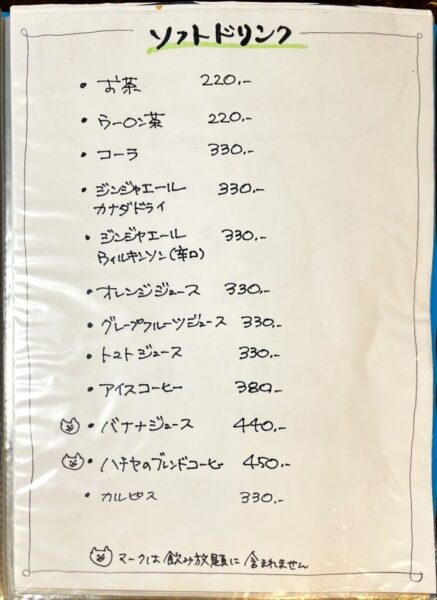 ソフトドリンク
・お茶 220.-
・ウーロン茶 220.-
・コーラ 330.-
・ジンジャエール 330.-
カナダドライ
・ジンジャエール 330.-
ウィルキンソン(辛口)
・オレンジジュース 330.-
・グレープフルーツジュース 330.-
・トマトジュース 330.-
・アイスコーヒー 380.-
・バナナジュース 440.-
・ハチヤのブレンドコーヒー 450.-
・カルピス 330.-
マークは飲み放題に含まれません